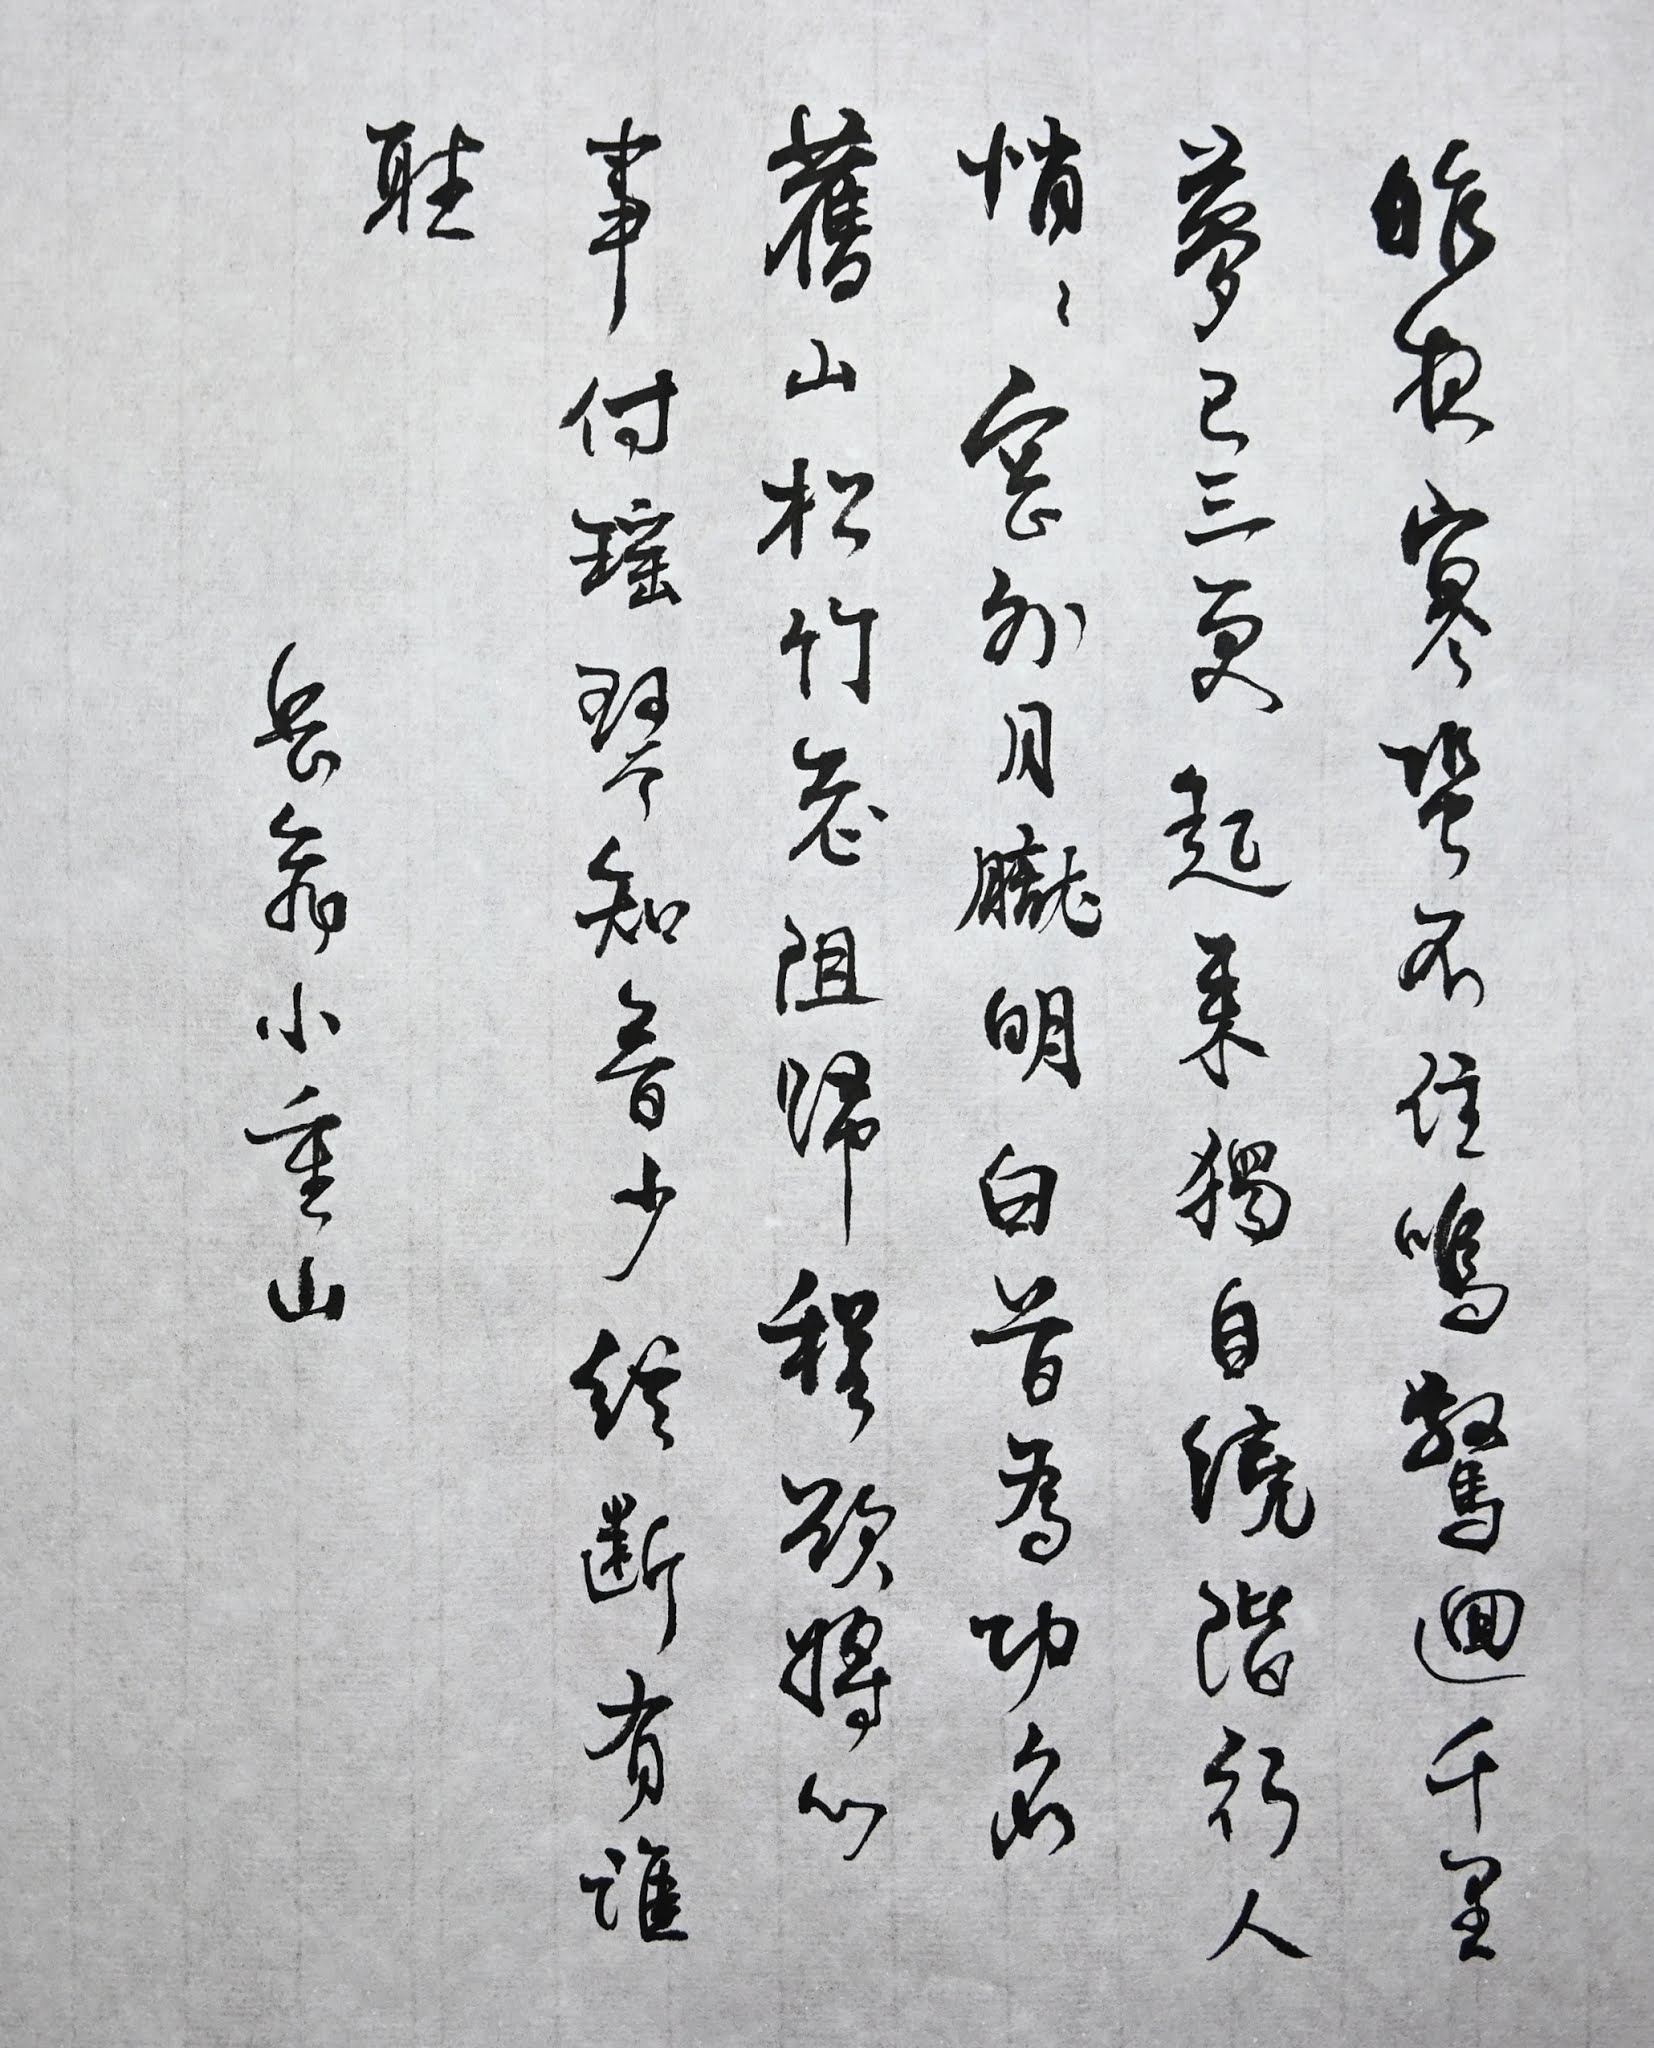 昨夜寒蛩不住鳴驚迴千里
夢已三更起來獨自繞階行人
悄〻窗外月朧明白首為功名
舊山松竹老阻歸程欲將心
事付瑤琴知音少絃斷有誰
聽
岳飛小重山